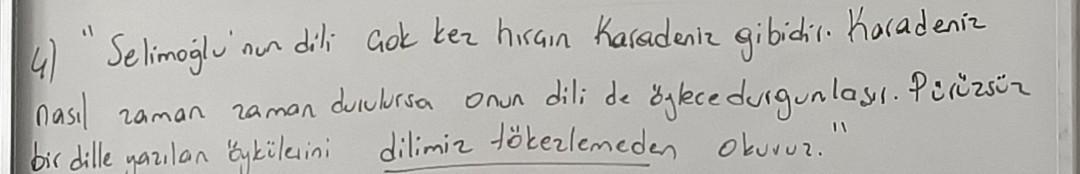 4) "Selimoğlu'nun dili çok kez hırçın Karadeniz gibidir. Karadeniz
nasıl zaman zaman durulursa onun dili de öylece durgunlaşır. Pürüzsüz
bir dille yazılan öykülerini dilimiz tökezlemeden okuruz."